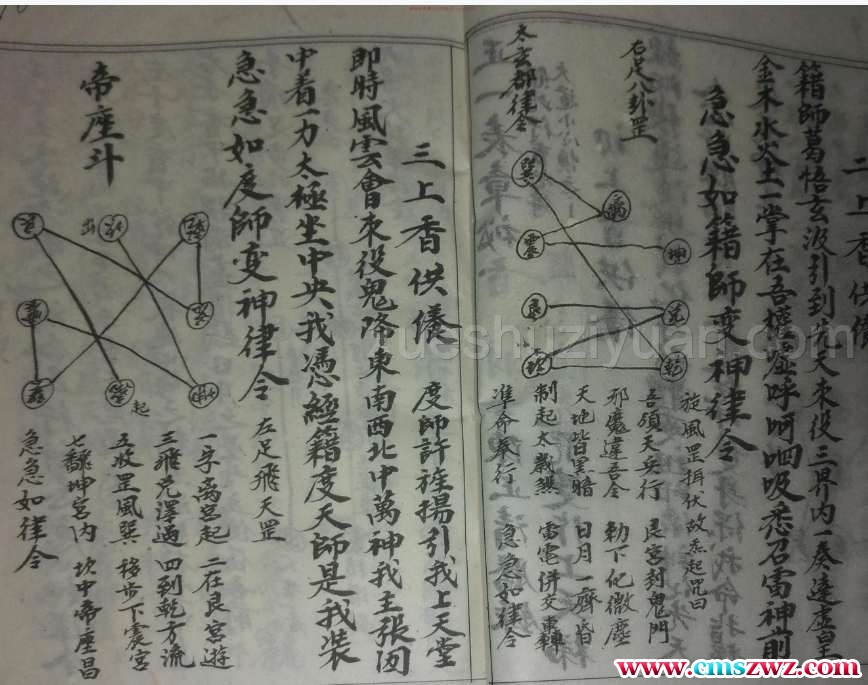 二上香供儀
籍師葛悟玄汲引到先天來役三界內一奏達虛皇
金木水火土一掌在吾權噓呼呵呬吸悉召雷神前
急急如籍師變神律令
旋風罡揖伏故炁起咒曰
吾領天兵行 艮宮封鬼門
邪魔違吾令 勅下化微塵
天地皆黑暗 日月一齊昏
制起太歲煞 雷電併交轟
準命奉行 急急如律令
右足八卦罡
巽
離
震
坤
艮
兌
坎
乾
太玄都律令
三上香供儀
度師許旌揚引我上天堂
即時風雲會來役鬼降東南西北中萬神我主張罔
中着一力太極坐中央我憑經籍度天師是我裝
急急如度師變神律令
左足飛天罡
一步離宮起 二在艮宮遊
三飛兌澤過 四到乾方流
五收罡風巽 移步下震宮
七翻坤宮內 坎中帝座昌
急急如律令
帝座斗
出
起
yueshuziyuan.com
www.cmszwz.com